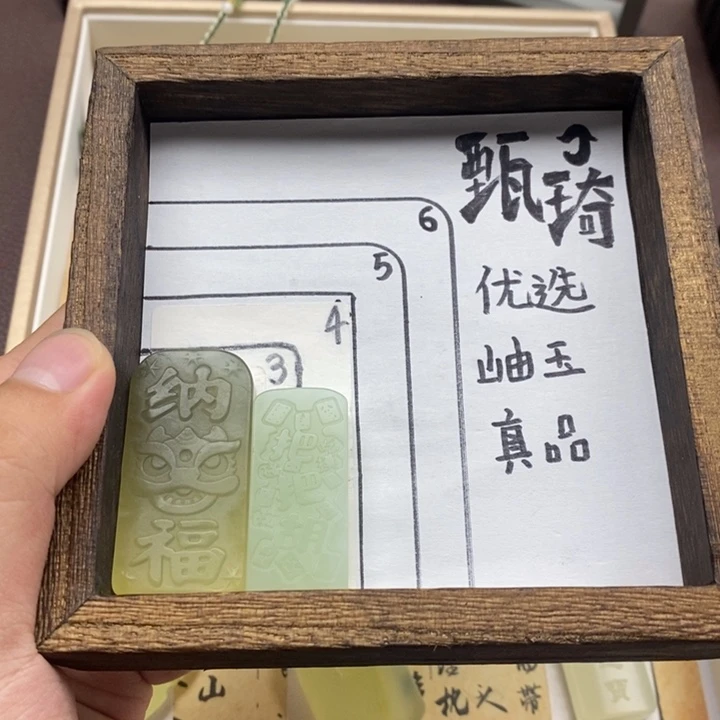 甄琦
优选
岫玉
真品
6
5
4
3
纳
福
山
枕头
带